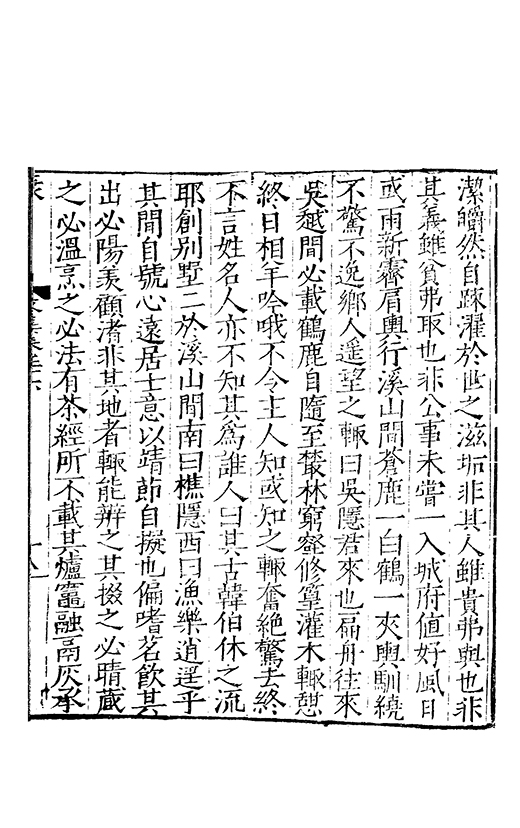 潔皭然自疎濯於世之滋垢非其人雖貴弗與也非
其義雖貧弗取也非公事未嘗一入城府值好風日
或雨新霽肩輿行溪山間蒼鹿一白鶴一夾輿馴繞
不驚不逸鄉人遥望之輙曰吳隱君來也扁舟往來
吳越間必載鶴鹿自隨至叢林窮壑修篁灌木輙憇
終日相羊吟哦不令主人知或知之輙奮絶驚去終
不言姓名人亦不知其爲誰人曰其古韓伯休之流
耶創别墅二於溪山間南曰樵隱西曰漁樂逍遥乎
其間自號心遠居士意以靖節自擬也偏嗜名飲其
出必陽羨顧渚非其地者輙能辨之其掇之必晴藏
之必温烹之必法有茶經所不載其爐竈融鬲灰承